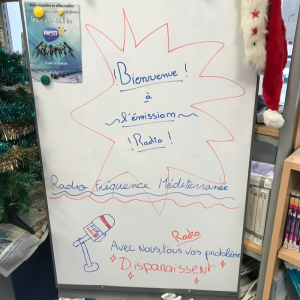 ! Bienvenue !
à
~ l'émission ~
! Radio !
Radio Fréquence Méditerranée
Radio
Avec Nous, tous vos problème
Disparaissent